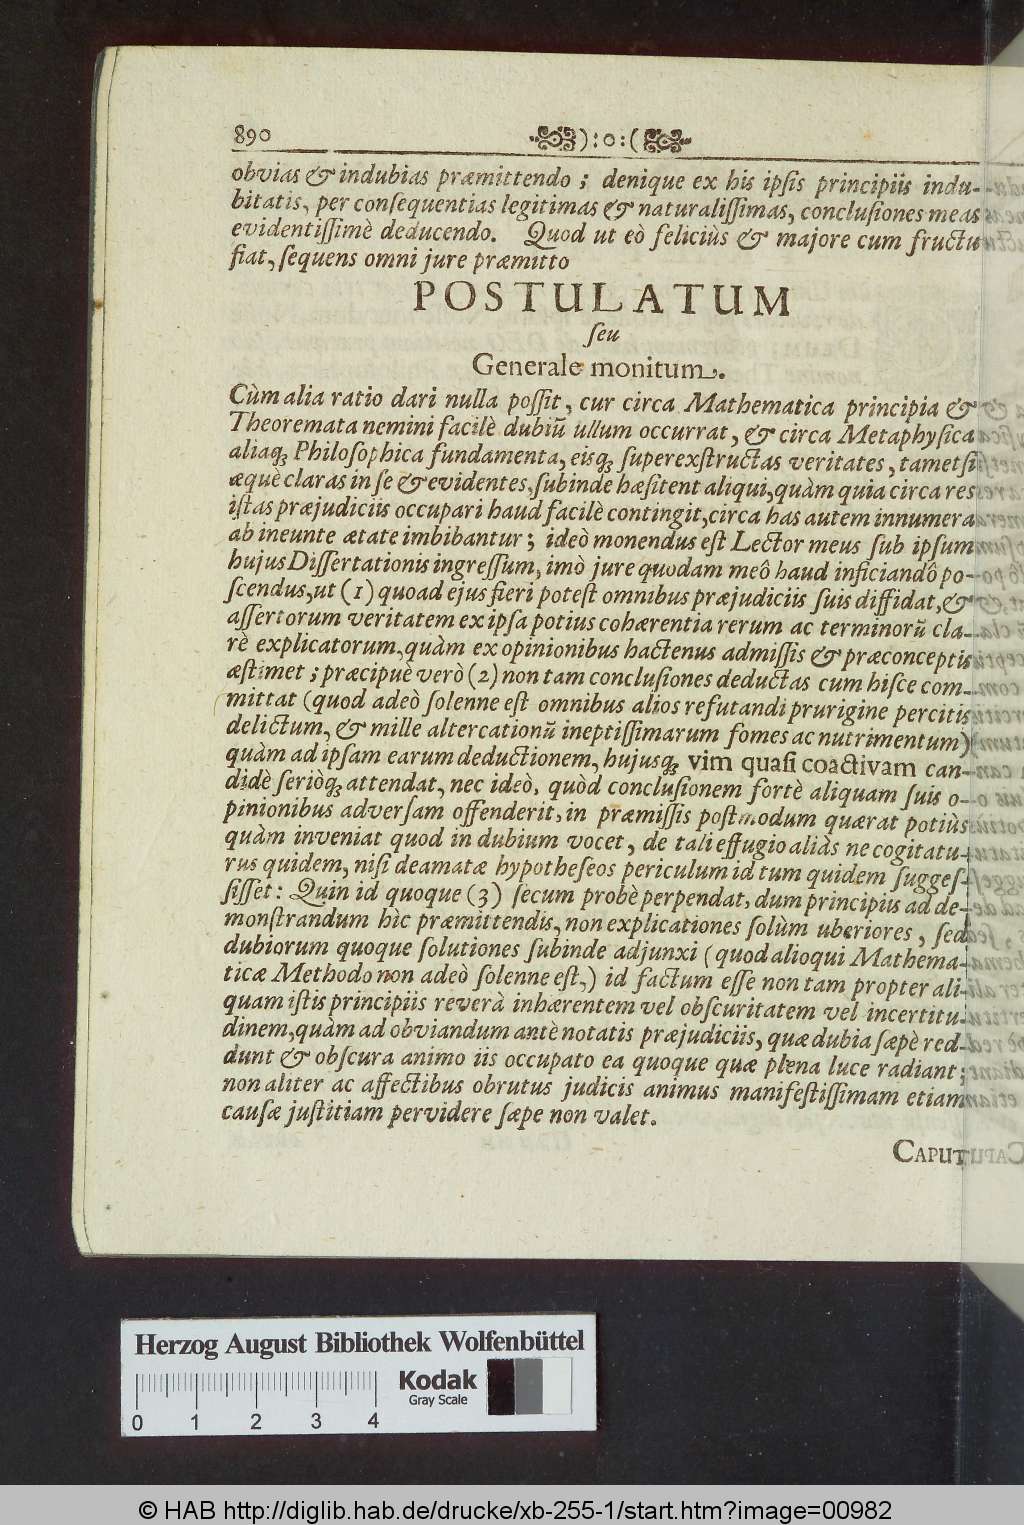 890 ):o:(
obvias & indubias præmittendo ; denique ex his ipſis principiis indu-
bitatis, per conſequentias legitimas & naturaliſſimas, concluſiones meas
evidentiſſimè deducendo. Quod ut eò feliciùs & majore cum fructu
fiat, ſequens omni jure præmitto
POSTULATUM
ſeu
Generale monitum.
Cùm alia ratio dari nulla poſſit, cur circa Mathematica principia &
Theoremata nemini facilè dubiũ ullum occurrat, & circa Metaphyſica
aliaq; Philoſophica fundamenta, eisq; ſuperexſtructas veritates, tametſi
æquè claras in ſe & evidentes, ſubinde hæſitent aliqui, quàm quia circa res
iſtas præjudiciis occupari haud facilè contingit, circa has autem innumera
ab ineunte ætate imbibantur; ideò monendus eſt Lector meus ſub ipſum
hujus Diſſertationis ingreſſum, imò jure quodam meô haud inficiandô po-
ſcendus, ut (1) quoad ejus fieri poteſt omnibus præjudiciis ſuis diffidat, &
aſſertorum veritatem ex ipſa potius cohærentia rerum ac terminorũ cla-
rè explicatorum, quàm ex opinionibus hactenus admiſſis & præconceptis
æſtimet ; præcipuè verò (2) non tam concluſiones deductas cum hiſce com-
mittat (quod adeò ſolenne eſt omnibus alios refutandi prurigine percitis
delictum, & mille altercationũ ineptiſſimarum fomes ac nutrimentum)
quàm ad ipſam earum deductionem, hujusq; vim quaſi coactivam can-
didè ſeriòq; attendat, nec ideò, quòd concluſionem fortè aliquam ſuis o-
pinionibus adverſam offenderit, in præmiſſis poſtmodum quærat potiùs
quàm inveniat quod in dubium vocet, de tali effugio aliàs ne cogitatu-
rus quidem, niſi deamatæ hypotheſeos periculum id tum quidem ſuggeſ-
ſiſſet: Quin id quoque (3) ſecum probè perpendat, dum principiis ad de-
monſtrandum hìc præmittendis, non explicationes ſolùm uberiores, ſed
dubiorum quoque ſolutiones ſubinde adjunxi (quod alioqui Mathema-
ticæ Methodo non adeò ſolenne eſt,) id factum eſſe non tam propter ali-
quam iſtis principiis reverà inhærentem vel obſcuritatem vel incertitu-
dinem, quàm ad obviandum antè notatis præjudiciis, quæ dubia ſæpè red-
dunt & obſcura animo iis occupato ea quoque quæ plena luce radiant;
non aliter ac affectibus obrutus judicis animus manifeſtiſſimam etiam
cauſæ juſtitiam pervidere ſæpe non valet.
CAPUT
Herzog August Bibliothek Wolfenbüttel
Kodak
Gray Scale
0 1 2 3 4
© HAB http://diglib.hab.de/drucke/xb-255-1/start.htm?image=00982